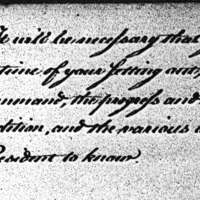 It will be necessary that
time of your setting out,
command, the progress and
dition, and the various
President to know.